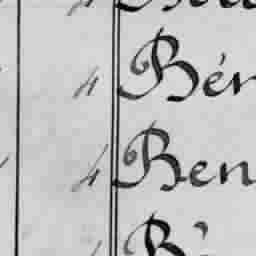 4 Bér
4 Ben